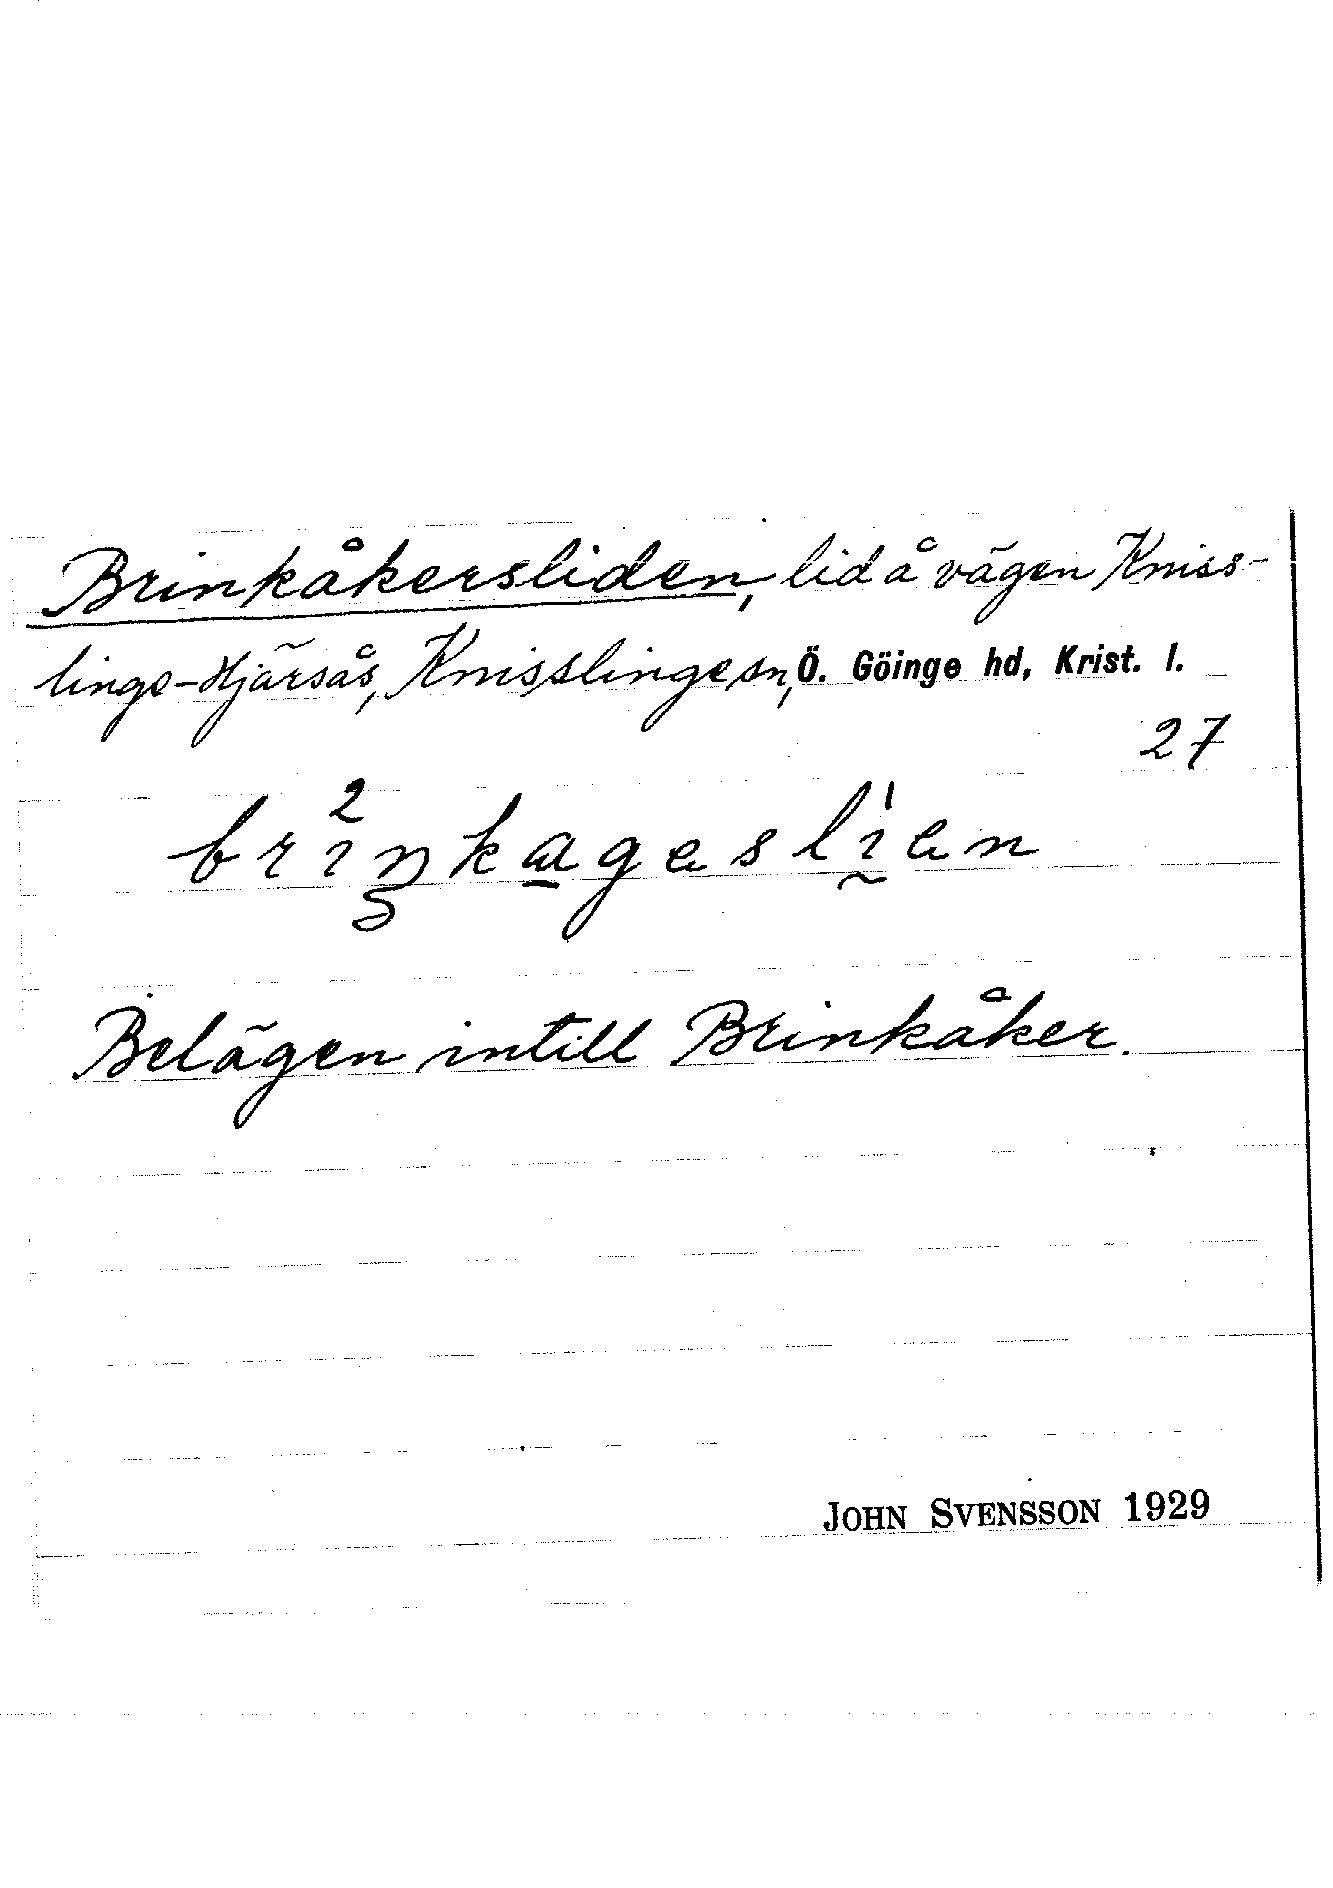 Brinkåkersliden, lid å vägen Kniss-
linge-Hjärsås, Knisslinge sn, Ö. Göinge hd, Krist. l.
27
Belägen intill Brinkåker.
JOHN SVENSSON 1929